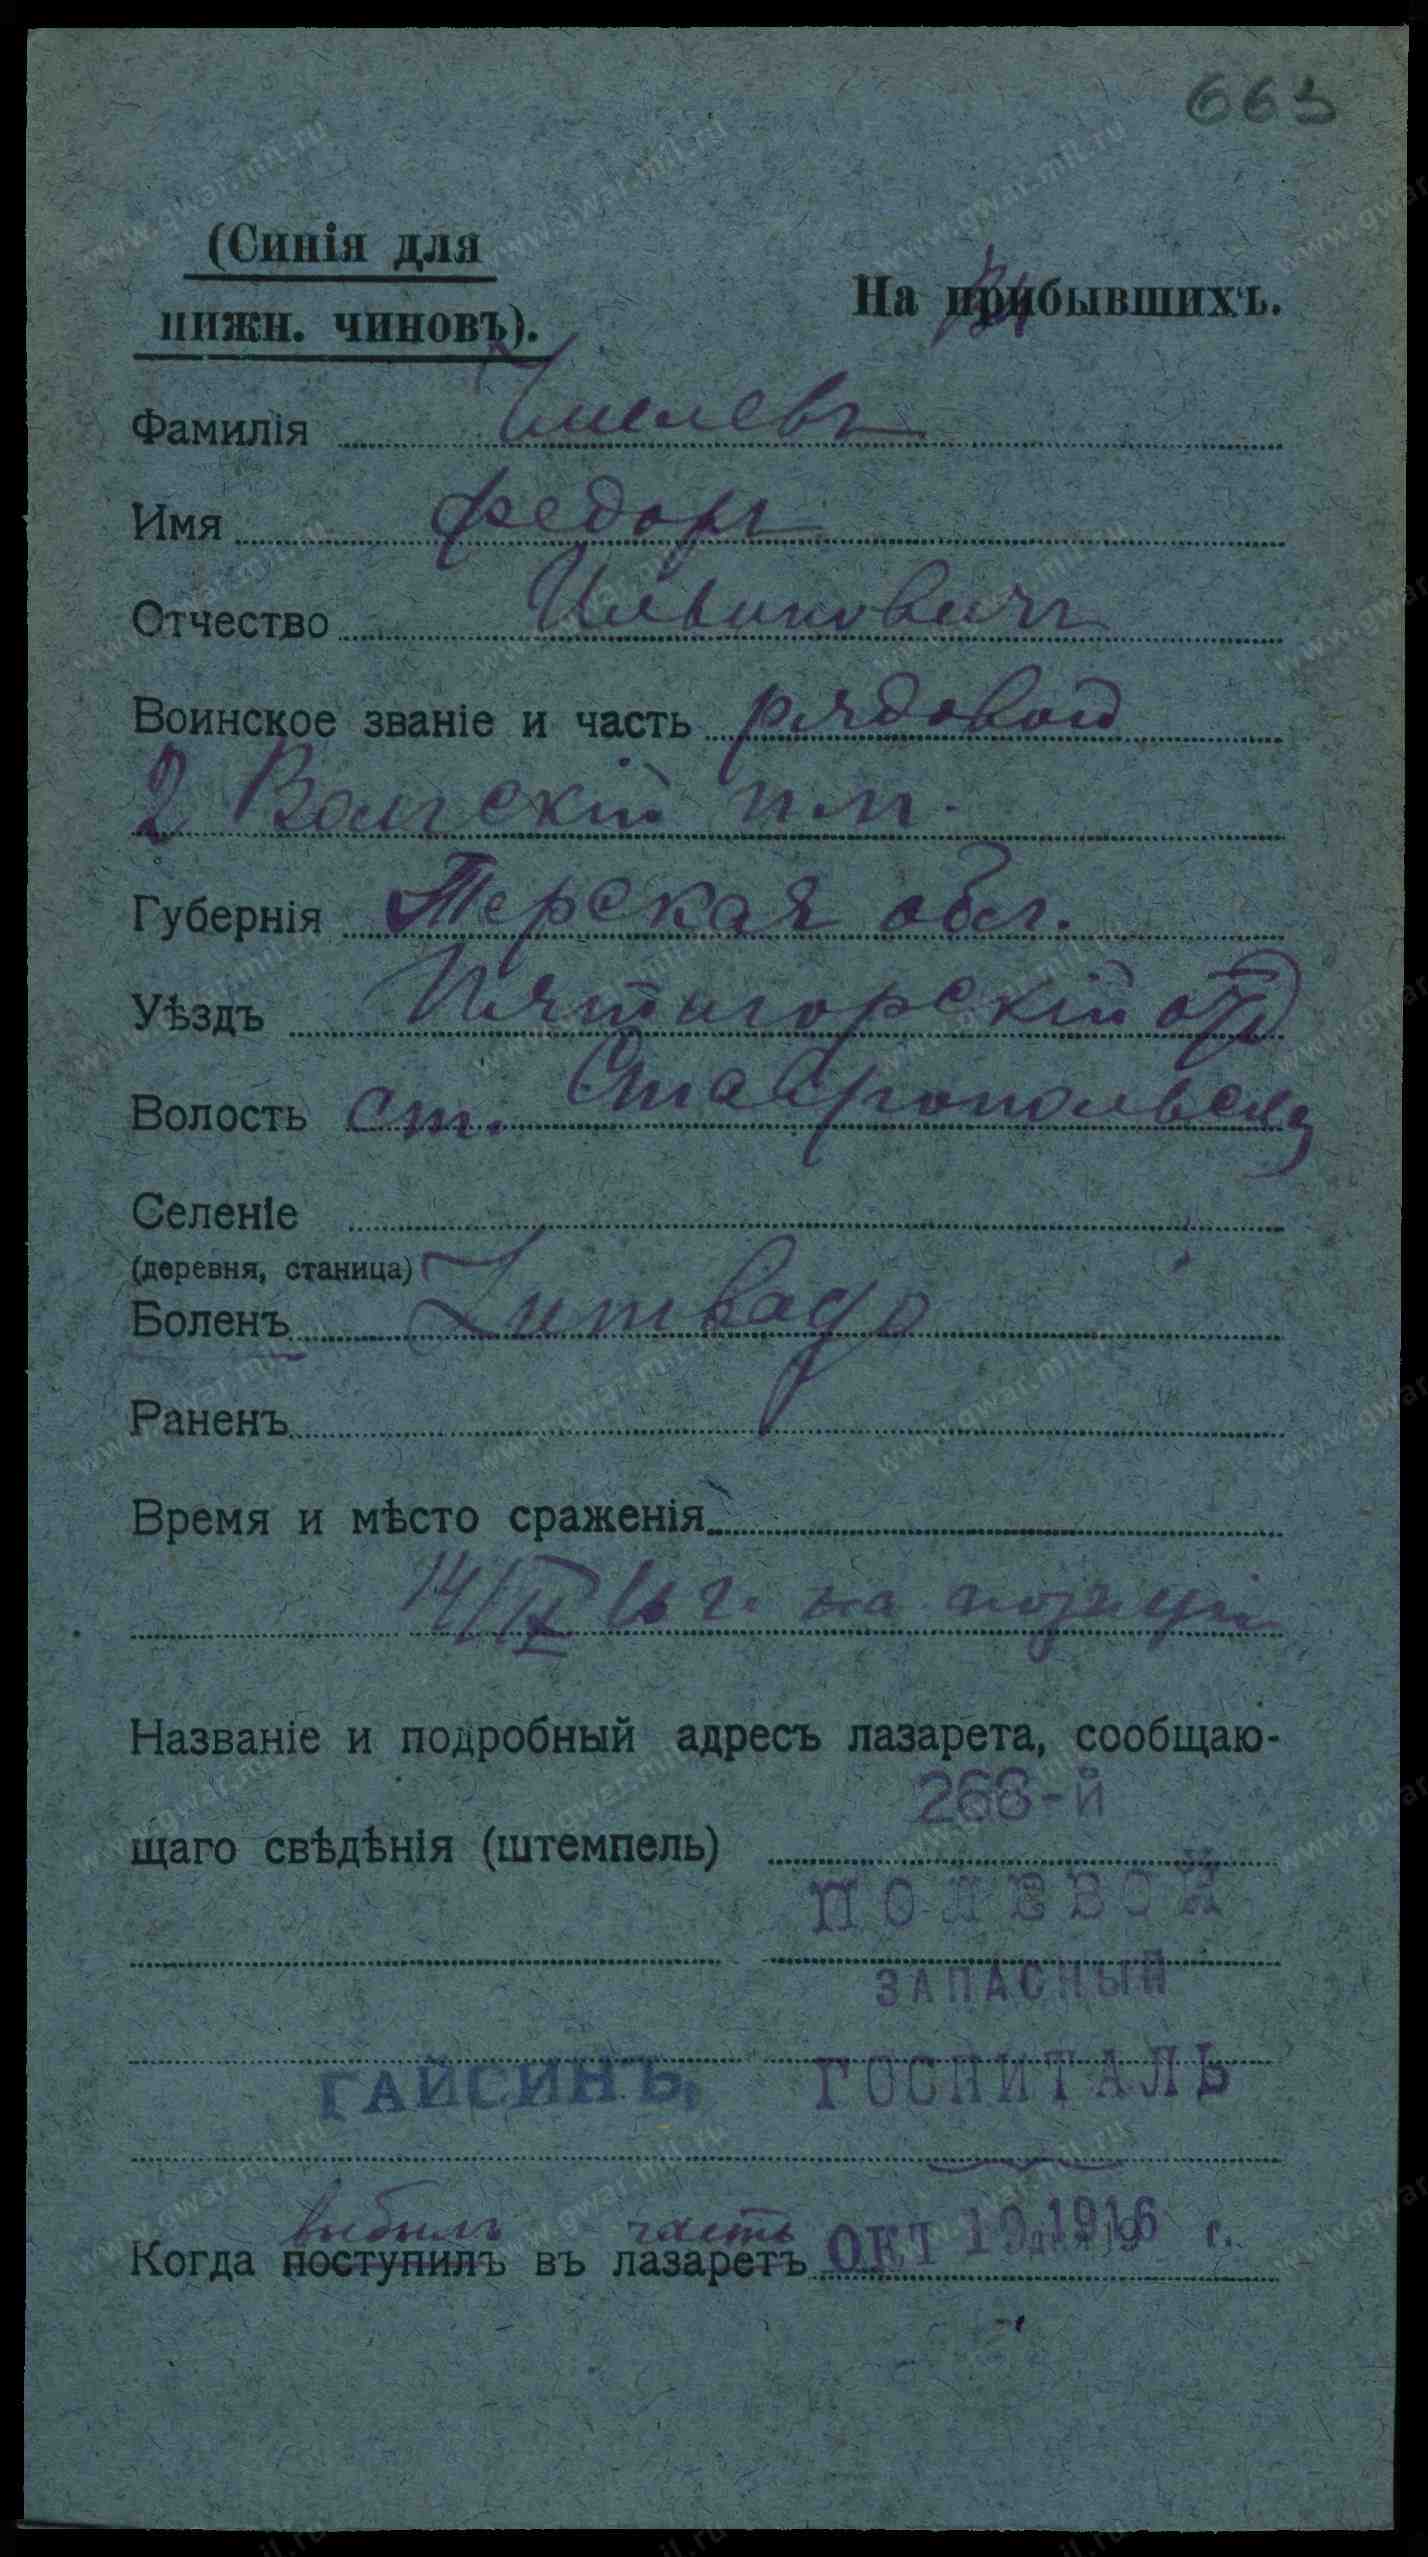 663
(Синія для
нижн. чиновъ).
На прибывшихъ.
вы
Фамилія
Имя Федоръ
Отчество
Воинское званіе и часть рядовой
2 Волгскій п.
Губернія Терская обл.
Уѣздъ Пятигорскій от
Волость ст. Ставропольска
Селеніе
(деревня, станица)
Боленъ
Раненъ
Время и мѣсто сраженія
14/IX 16 г. на позиціи
Названіе и подробный адресъ лазарета, сообщаю-
щаго свѣдѣнія (штемпель)
268-й
ПОЛЕВОЙ
ЗАПАСНЫЙ
ГАЙСИНЪ, ГОСПИТАЛЬ
выбылъ часть
Когда поступилъ въ лазаретъ ОКТ 10 1916 г.